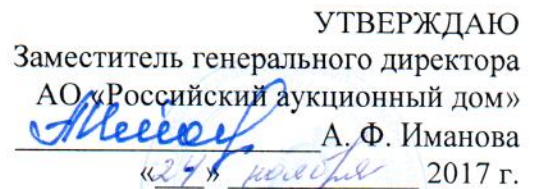 УТВЕРЖДАЮ
Заместитель генерального директора
АО «Российский аукционный дом»
А. Ф. Иманова
«24» ноября 2017 г.